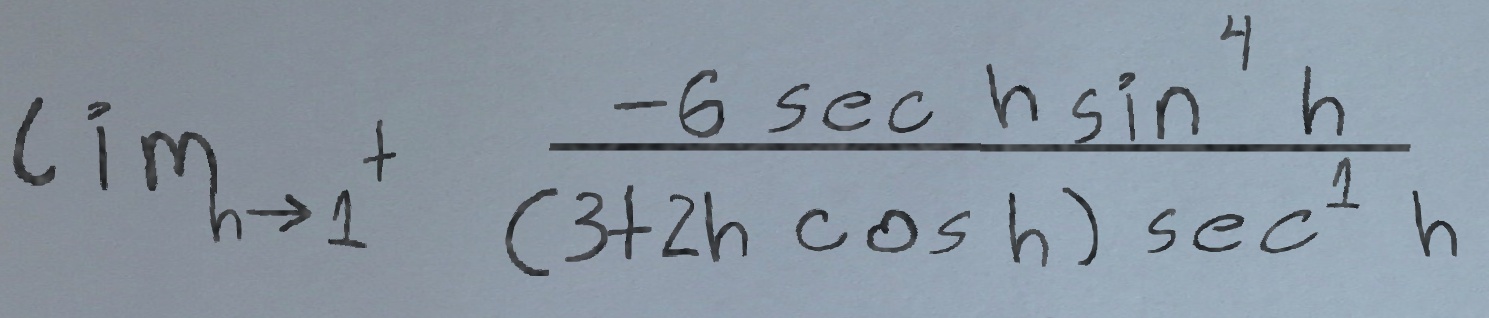 \lim_{h \to 1^+} \frac{-6 \sec h \sin^4 h}{(3+2h \cos h) \sec^1 h}